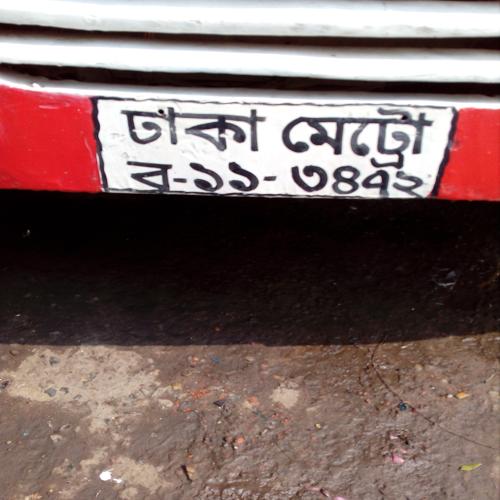 ঢাকা মেট্রো
ব-১১-৩৪৭২